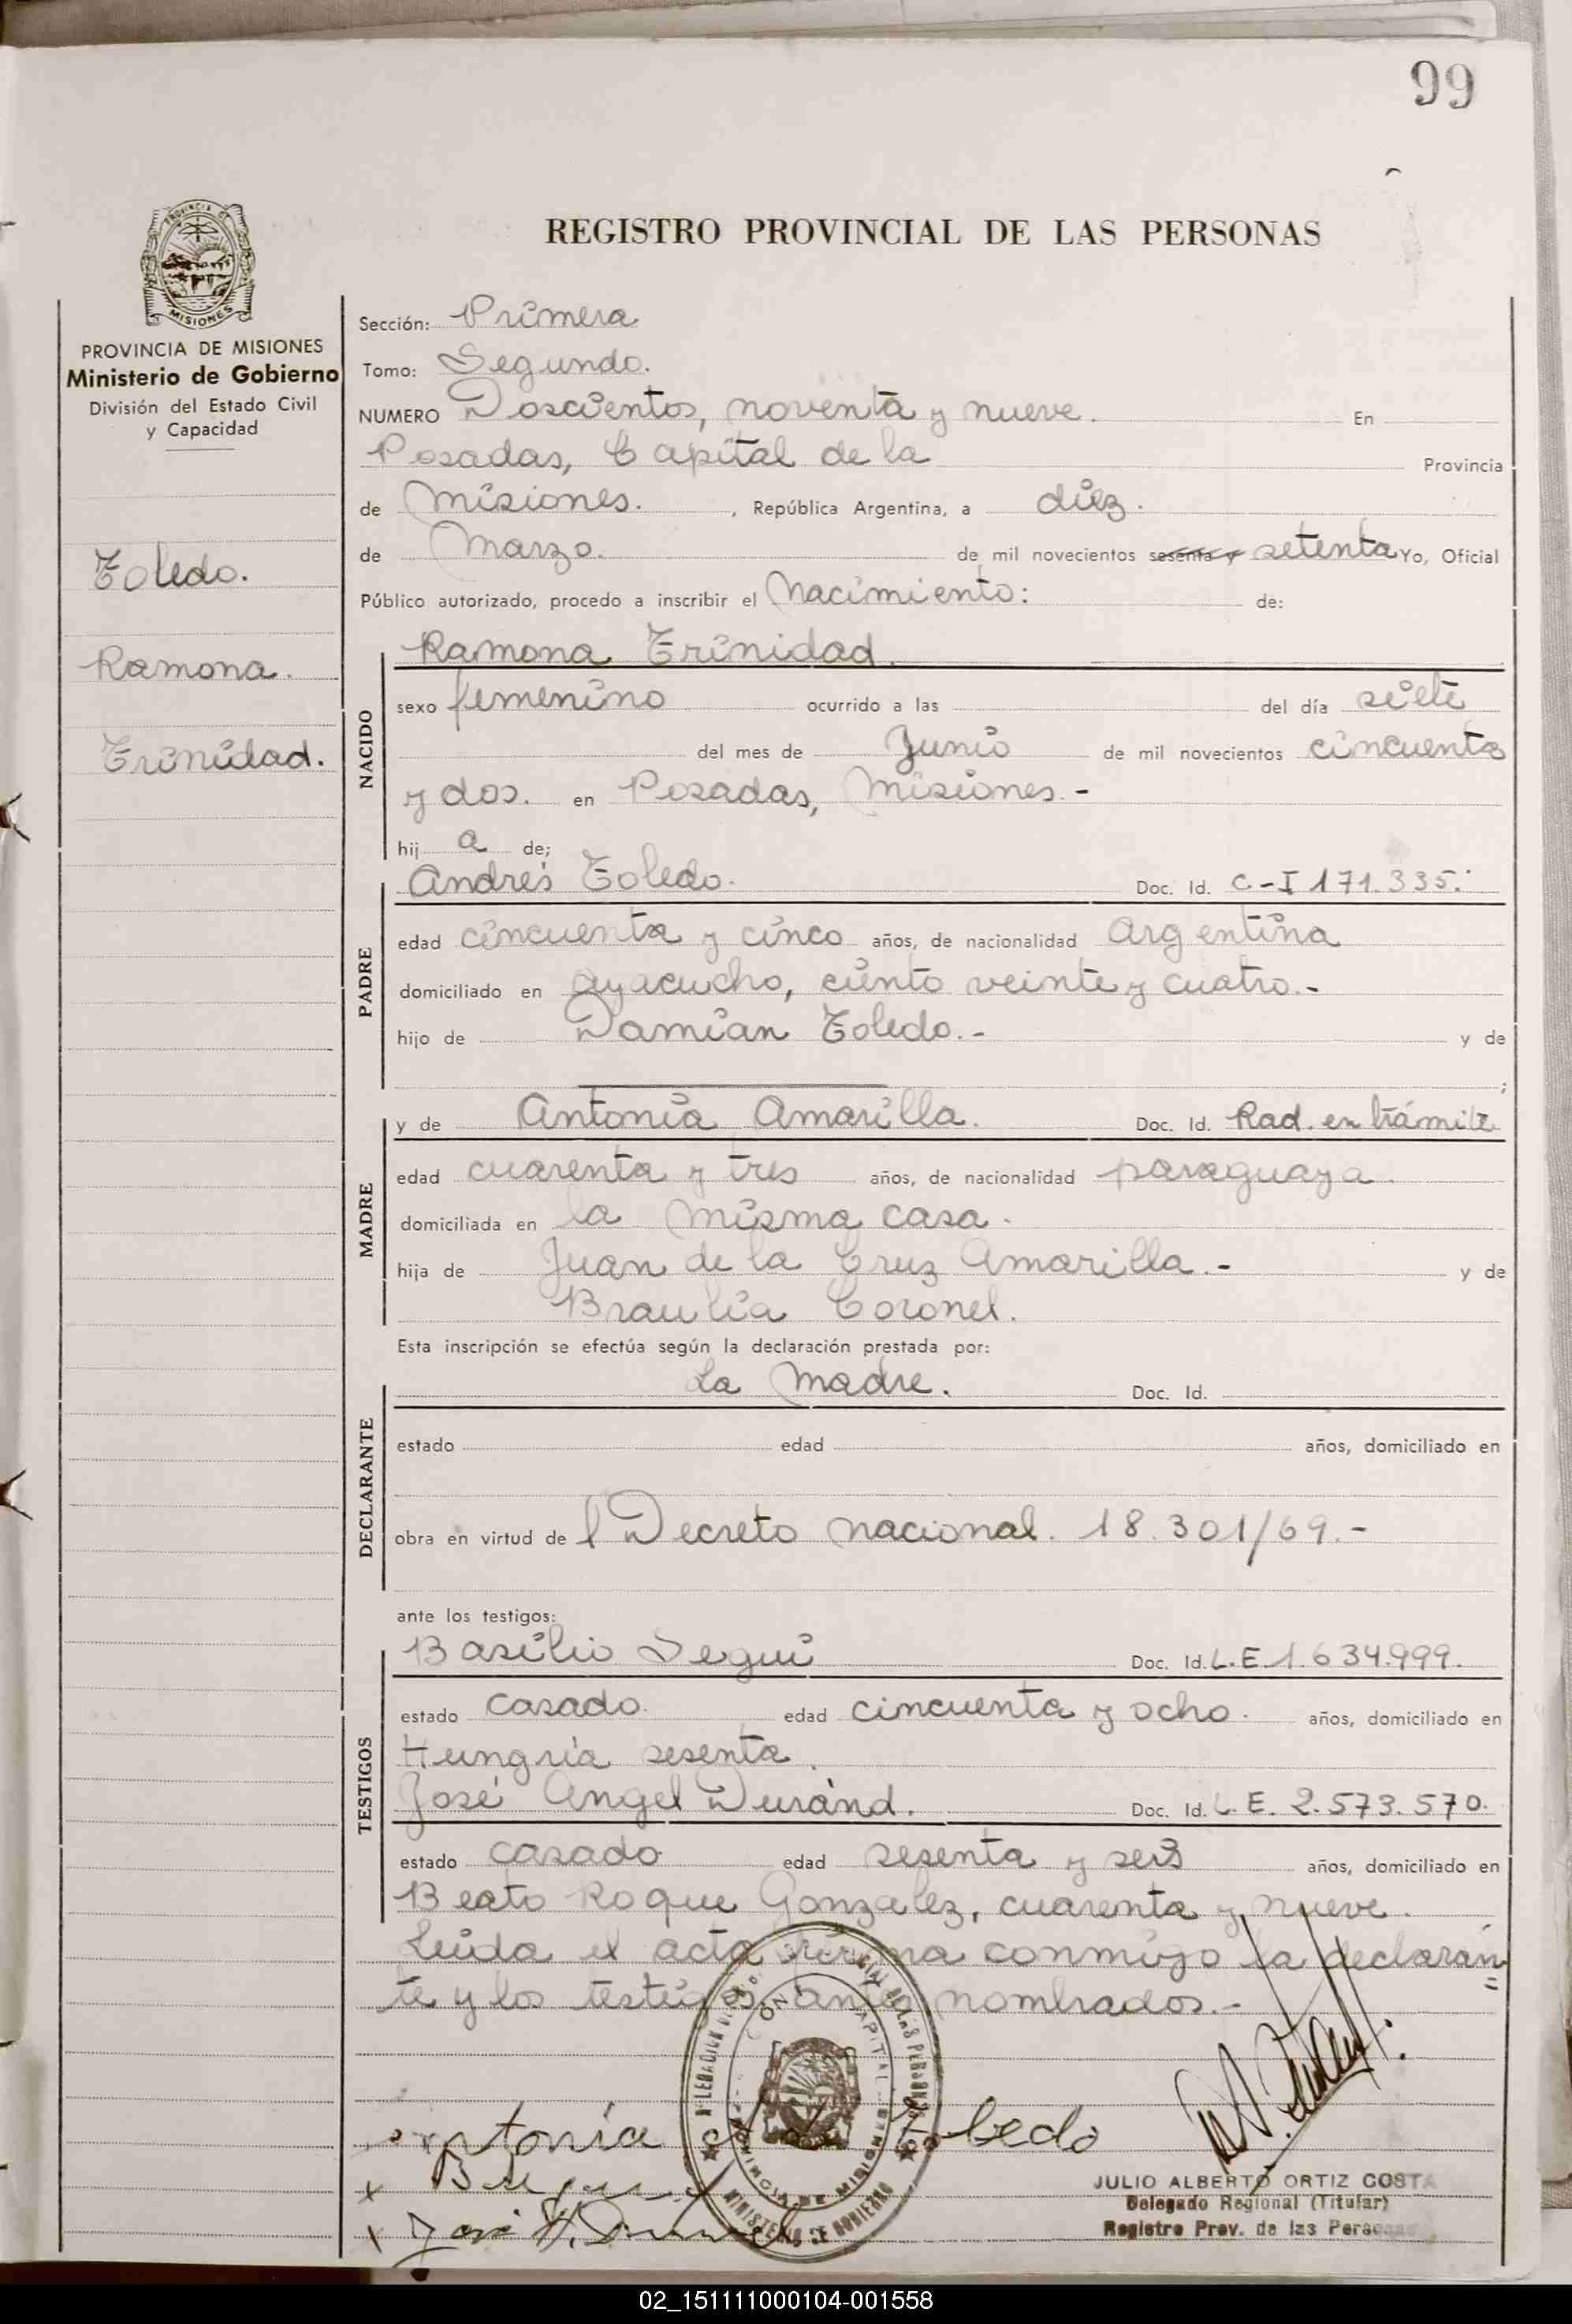 99
REGISTRO PROVINCIAL DE LAS PERSONAS
PROVINCIA DE
MISIONES
PROVINCIA DE MISIONES
Ministerio de Gobierno
División del Estado Civil
y Capacidad
Toledo.
Ramona.
Trinidad.
Sección: Primera
Tomo: Segundo.
NUMERO Doscientos, noventa y nueve. En
Posadas, Capital de la Provincia
de Misiones. , República Argentina, a diez.
de Marzo. de mil novecientos sesenta y setenta Yo, Oficial
Público autorizado, procedo a inscribir el Nacimiento: de:
NACIDO
Ramona Trinidad.
sexo femenino ocurrido a las del día siete
del mes de Junio de mil novecientos cincuenta
y dos. en Posadas, Misiones.-
hij a de;
PADRE
Andrés Toledo. Doc. Id. C-I 171.335.
edad cincuenta y cinco años, de nacionalidad Argentina
domiciliado en Ayacucho, ciento veinte y cuatro.-
hijo de Damián Toledo.- y de
;
MADRE
y de Antonia Amarilla. Doc. Id. Rad. en trámite
edad cuarenta y tres años, de nacionalidad paraguaya.
domiciliada en la misma casa.
hija de Juan de la Cruz Amarilla.- y de
Braulia Coronel.
Esta inscripción se efectúa según la declaración prestada por:
DECLARANTE
La Madre. Doc. Id.
estado edad años, domiciliado en
obra en virtud de l Decreto nacional. 18.301/69.-
ante los testigos:
TESTIGOS
Basilio Segui Doc. Id. L.E. 1.634.999.
estado casado. edad cincuenta y ocho. años, domiciliado en
Hungria sesenta.
José Angel Duránd. Doc. Id. L.E. 2.573.570.
estado casado edad sesenta y seis años, domiciliado en
Beato Roque Gonzalez, cuarenta y nueve.
Leída el acta firma conmigo la declaran
te y los testigos antes nombrados.-
Antonia A de Toledo
x B Segui
x José A. Durand
CAPITAL
PROVINCIA DE MISIONES
MINISTERIO DE GOBIERNO
JULIO ALBERTO ORTIZ COSTA
Delegado Regional (Titular)
Registro Prov. de las Personas
02_151111000104-001558